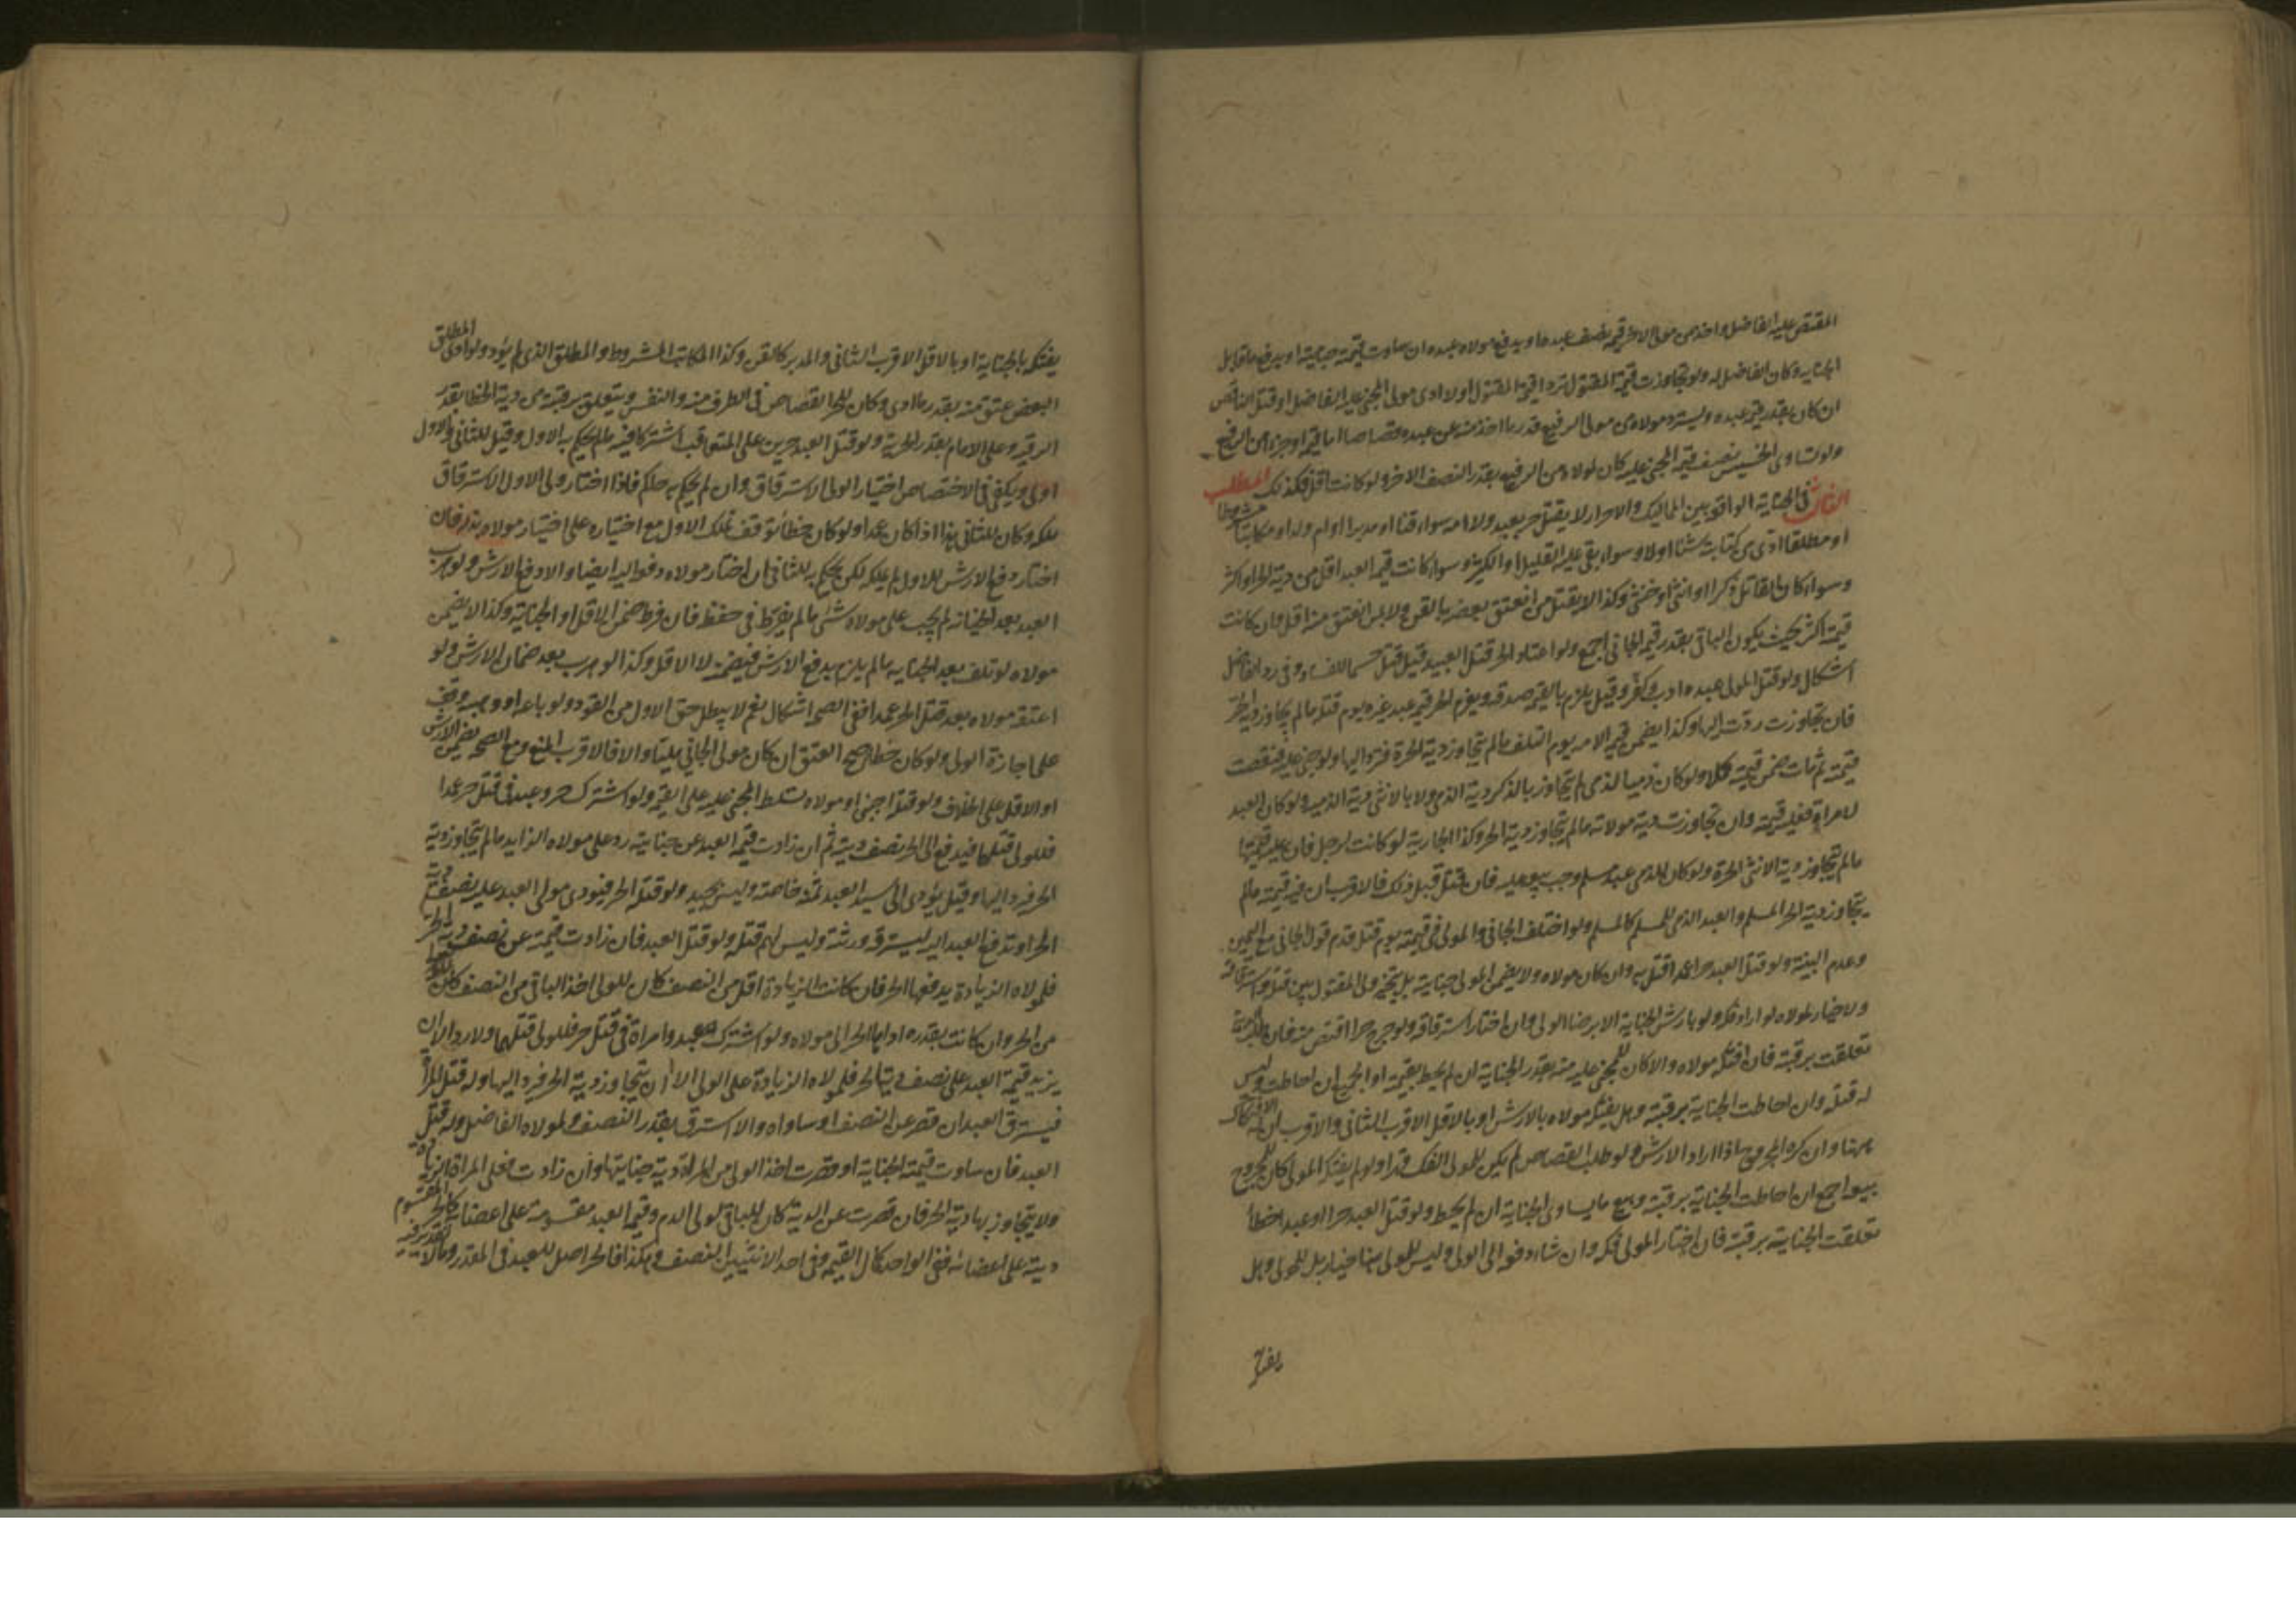 المقتص عليه الفاضل واخذ من مولى الاخر قيمة نصف عبده او يدفع مولاه عبده ان ساوت قيمته جنايته او يدفع ما قابل
الجناية وكان الفاضل له ولو تجاوزت قيمة المقتول ترد قيمة المقتول اولا ادى مولى المجني عليه الفاضل او قتل الناقص
ان كان بقدر قيمة عبده ويسترد مولاه من مولى الرفيع قدر ما اخذ منه عن عبده قصاصا اما قيمة او جزء من الرفيع
ولو تساوى الخسيس نصف قيمة المجني عليه كان لمولاه من الرفيع بقدر النصف الاخر ولو كانت اقل فكذلك المطلب
الثاني في الجناية الواقعة بين المماليك والاحرار لا يقتل حر بعبد ولا امة سواء قنا او مدبرا او ام ولد او مكاتبا مشروطا
او مطلقا ادى من كتابته شيئا اولا وسواء بقي عليه القليل او الكثير وسواء كانت قيمة العبد اقل من دية الحر او اكثر
وسواء كان القاتل ذكرا او انثى او خنثى وكذا لا يقتل من انعتق بعضه بالقن ولا بمن انعتق منه اقل وان كانت
قيمته اكثر بحيث يكون الباقي بقدر قيمة الجاني اجمع ولو اعتاد الحر قتل العبيد قيل قتل حسما للفساد وفي رد الفاضل
اشكال ولو قتل المولى عبده ادب وكفر وقيل يلزم بالقيمة صدقة ويغرم الحر قيمة عبد غيره يوم قتله ما لم يتجاوز دية الحر
فان تجاوزت ردت اليها وكذا يضمن قيمة الامة يوم التلف ما لم يتجاوز دية الحرة فترد اليها ولو جنى عليه فنقصت
قيمته ثم مات ضمن قيمته كملا ولو كان ذميا لذمي لم يتجاوز بالذكر دية الذمي ولا بالانثى دية الذمية ولو كان العبد
لامراة فعليه قيمته وان تجاوزت دية مولاته ما لم يتجاوز دية الحر وكذا الجارية لو كانت لرجل فان عليه قيمتها
ما لم تتجاوز دية الانثى الحرة ولو كان للذمي عبد مسلم وجب بيعه عليه فان قتل قبل ذلك فالاقرب ان فيه قيمته ما لم
تتجاوز دية الحر المسلم والعبد الذمي للمسلم كالمسلم ولو اختلف الجاني والمولى في قيمته يوم قتل قدم قول الجاني مع اليمين
وعدم البينة ولو قتل العبد حرا عمدا قتل به وان كان مولاه ولا يضمن المولى جنايته بل يتخير ولي المقتول بين قتله واسترقاقه
ولا خيار لمولاه لو اراد فكه ولو بارش الجناية الا برضا الولي وان اختار استرقاقه ولو جرح حرا اقتص منه فان طلب الدية
تعلقت برقبته فان افتكه مولاه والا كان للمجني عليه منه بقدر الجناية ان لم يحط بقيمته او الجميع ان احاطت وليس
له قتله وان احاطت الجناية برقبته وهل يفتكه مولاه بالارش او بالاقل الاقرب الثاني والاقرب ان له الافتكاك
هنا وان كره المجروح اذا اراد الارش ولو طلب القصاص لم يكن للمولى الفك قهرا ولو لم يفتكه المولى كان للمجروح
بيعه اجمع ان احاطت الجناية برقبته وبيع ما يساوي الجناية ان لم يحط ولو قتل العبد حرا او عبدا خطأ
تعلقت الجناية برقبته فان اختار المولى فكه وان شاء دفعه الى الولي وليس للولي هنا خيار بل للمولى وهل
يفتكه
يفتكه بالجناية او بالاقل الاقرب الثاني والمدبر كالقن وكذا المكاتب المشروط والمطلق الذي لم يؤد ولو ادى المطلق
البعض عتق منه بقدر ما ادى وكان للحر القصاص في الطرف منه والنفس ويتعلق برقبته من دية الخطا بقدر
الرقية وعلى الامام بقدر الحرية ولو قتل العبد حرين على التعاقب اشتركا فيه ما لم يحكم به للاول وقيل للثاني والاول
اولى ويكفي في الاختصاص اختيار الولي الاسترقاق وان لم يحكم به حاكم فاذا اختار ولي الاول الاسترقاق
ملكه وكان للثاني هذا اذا كان عمدا ولو كان خطأ توقف تملك الاول مع اختياره على اختيار مولاه بذله فان
اختار دفع الارش للاول لم يملكه لكن يحكم به للثاني ان اختار مولاه دفعه اليه ايضا والا دفع الارش ولو هرب
العبد بعد الجناية لم يجب على مولاه شئ ما لم يفرط في حفظه فان فرط ضمن الاقل او الجناية وكذا لا يضمن
مولاه لو تلف بعد الجناية ما لم يلزم بدفع الارش فيضمنه لا الاقل وكذا لو هرب بعد ضمان الارش ولو
اعتقه مولاه بعد قتل الحر عمدا ففي الصحة اشكال نعم لا يبطل حق الاول من القود ولو باعه او وهبه وقف
على اجازة الولي ولو كان خطا صح العتق ان كان مولى الجاني مليا والا فالاقرب المنع ومع الصحة يضمن الارش
او الاقل على الخلاف ولو قتله اجنبي او مولاه تسلط المجني عليه على القيمة ولو اشترك حر وعبد في قتل حر عمدا
فللولي قتلهما فيدفع الى الحر نصف ديته ثم ان زادت قيمة العبد عن جنايته رد على مولاه الزايد ما لم يتجاوز دية
الحر فيرد اليها وقيل يؤدى الى سيد العبد ثمنه خاصة وليس بجيد ولو قتل الحر فيؤدي مولى العبد عليه نصف دية
الحر او تدفع العبد اليه ليسترقه ورثته وليس لهم قتله ولو قتل العبد فان زادت قيمته عن نصف دية الحر
فلمولاه الزيادة يدفعها الحر فان كانت الزيادة اقل من النصف كان للولي اخذ الباقي من النصف
من الحر وان كانت بقدره اداها الحر الى مولاه ولو اشترك عبد وامراة في قتل حر فللولي قتلهما ولا رد الا ان
يزيد قيمة العبد على نصف دية الحر فلمولاه الزيادة على الولي الا ان يتجاوز دية الحر فيرد اليها وله قتل المرأة
فيسترق العبد ان قصر عن النصف او ساواه والا استرق بقدر النصف ولمولاه الفاضل وله قتل
العبد فان ساوت قيمته الجناية او قصرت اخذ الولي من المراة دية جنايتها وان زادت فعلى المراة الزيادة
ولا يتجاوز بها دية الحر فان قصرت عن الدية كان الباقي لولي الدم وقيمة العبد مقسومة على اعضائه كالحر المقسوم
ديته على اعضائه ففي الواحد كمال القيمة وفي احد الاثنين النصف وهكذا فالحر اصل للعبد في المقدر